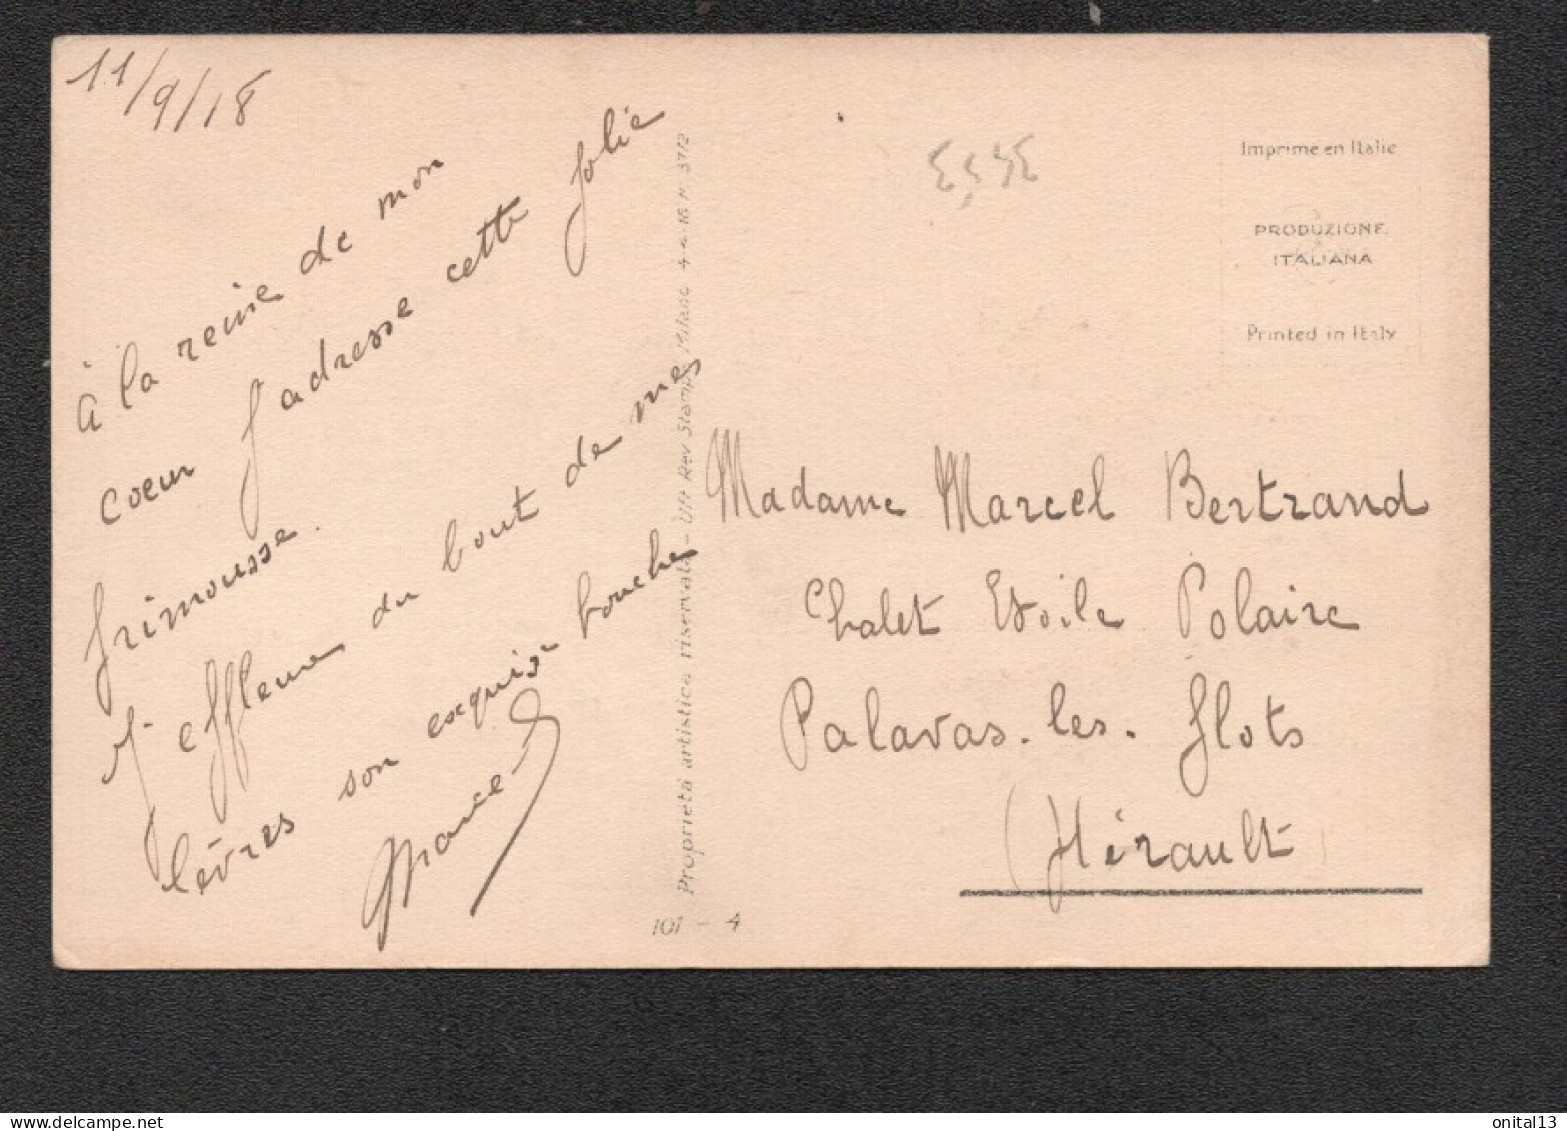 11/9/18
à la reine de mon
coeur j'adresse cette jolie
frimousse.
et effleure du bout de mes
lèvres son exquise bouche
Marcel
Proprietà artistica riservata - Uff. Rev. Stampa Milano 4-4-18 N 3712
101 - 4
Imprimé en Italie
PRODUZIONE
ITALIANA
Printed in Italy
Madame Marcel Bertrand
Chalet Etoile Polaire
Palavas-les-flots
(Hérault)
onital13